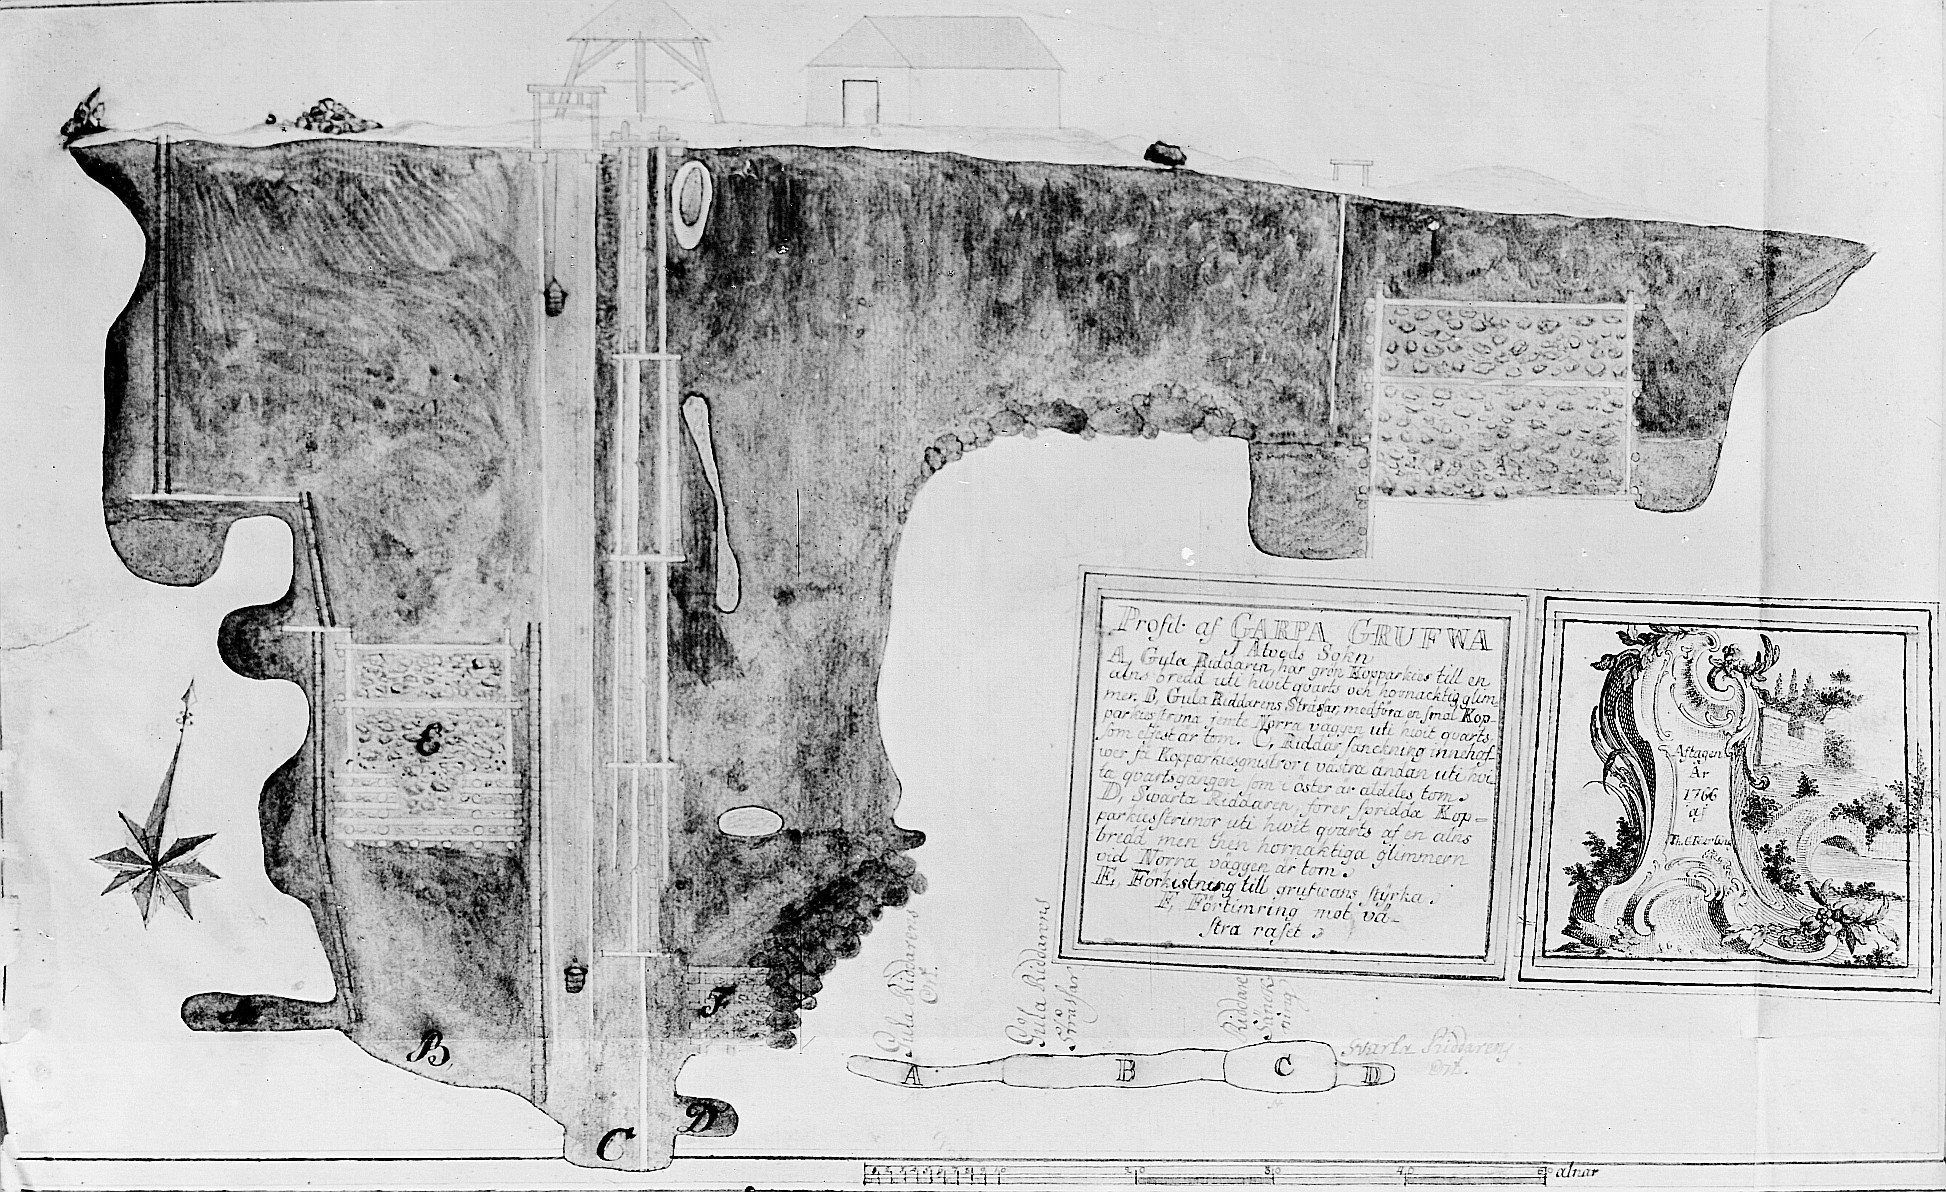 Profil af GARPA GRUFWA
i Åtveds Sokn
A, Gula Riddaren, har grön Kopparkies till en
alns bredd uti hwit qvarts och hornacktig glim-
mer. B, Gula Riddarens Stråsar, medföra en smal Kop-
parkies strima jemte Norra väggen uti hwit qvarts,
som eljest är tom. C, Riddar sänckning innehaf-
wer få Kopparkiesgnistror i västra ändan uti hvi
ta qvartsgången som i öster är aldeles tom.
D, Swarta Riddaren, förer spridda Kop-
parkiesstrimor uti hwit qvarts af en alns
bredd men then hornaktiga glimmern
vid Norra väggen är tom.
E, Förkistning till grufwans styrka.
F, Förtimring mot vä-
stra raset.
Aftagen
År
1766
af
E
F
A
B
C
D
Gula Riddarens
Ort.
Gula Riddarens
Stråssar
Riddare
Sänck
ning
Svarta Riddarens
Ort.
A B C D
10 20 30 40 50 alnar